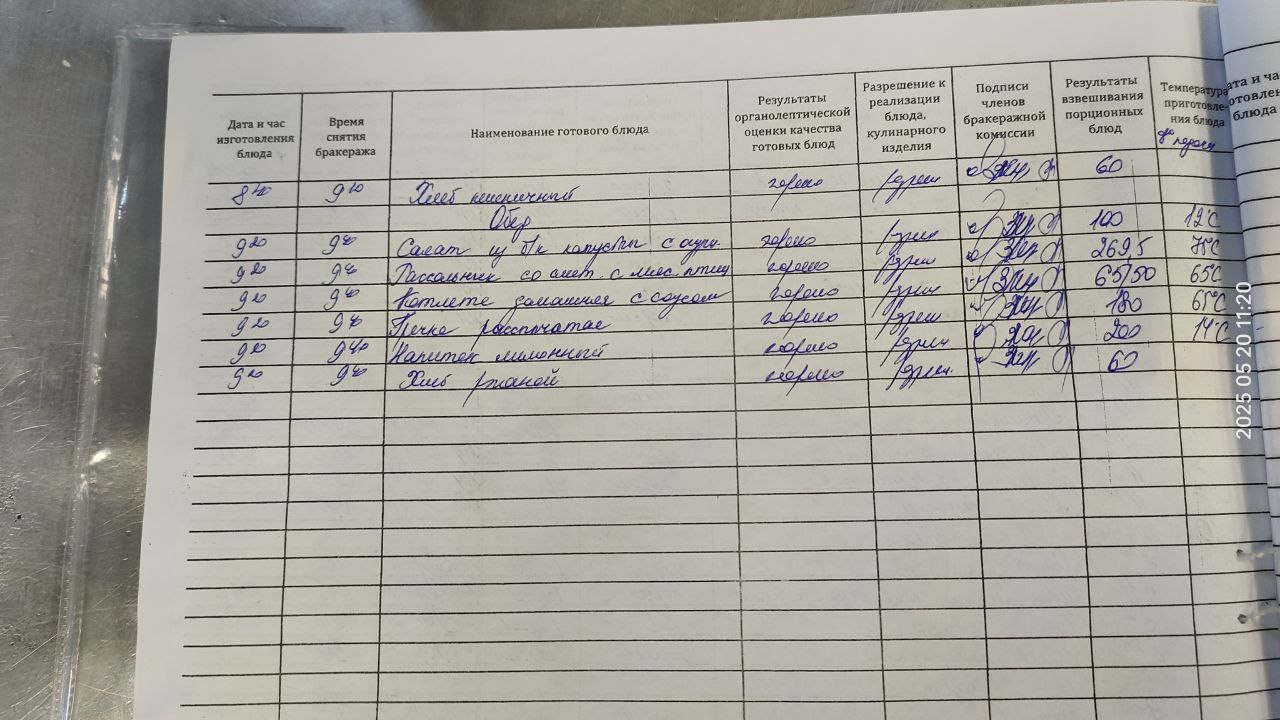 Дата и час изготовления блюда
Время снятия бракеража
Наименование готового блюда
Результаты органолептической оценки качества готовых блюд
Разрешение к реализации блюда, кулинарного изделия
Подписи членов бракеражной комиссии
Результаты взвешивания порционных блюд
Температура приготовле-ния блюда
8 9 Хлеб пшеничный хорошо 60
Обед
9 20 9 40 Салат из б/к капусты с огурц. хорошо 100 12°C
9 20 9 40 Рассольник со смет. с мяс. птицы хорошо 269,5 75°C
9 20 9 40 Котлета домашняя с соусом хорошо 65/50 65°C
9 20 9 40 Гречка рассыпчатая хорошо 180 65°C
9 20 9 40 Напиток лимонный хорошо 200 14°C
9 20 9 40 Хлеб ржаной хорошо 60
2025 05 20 11:20